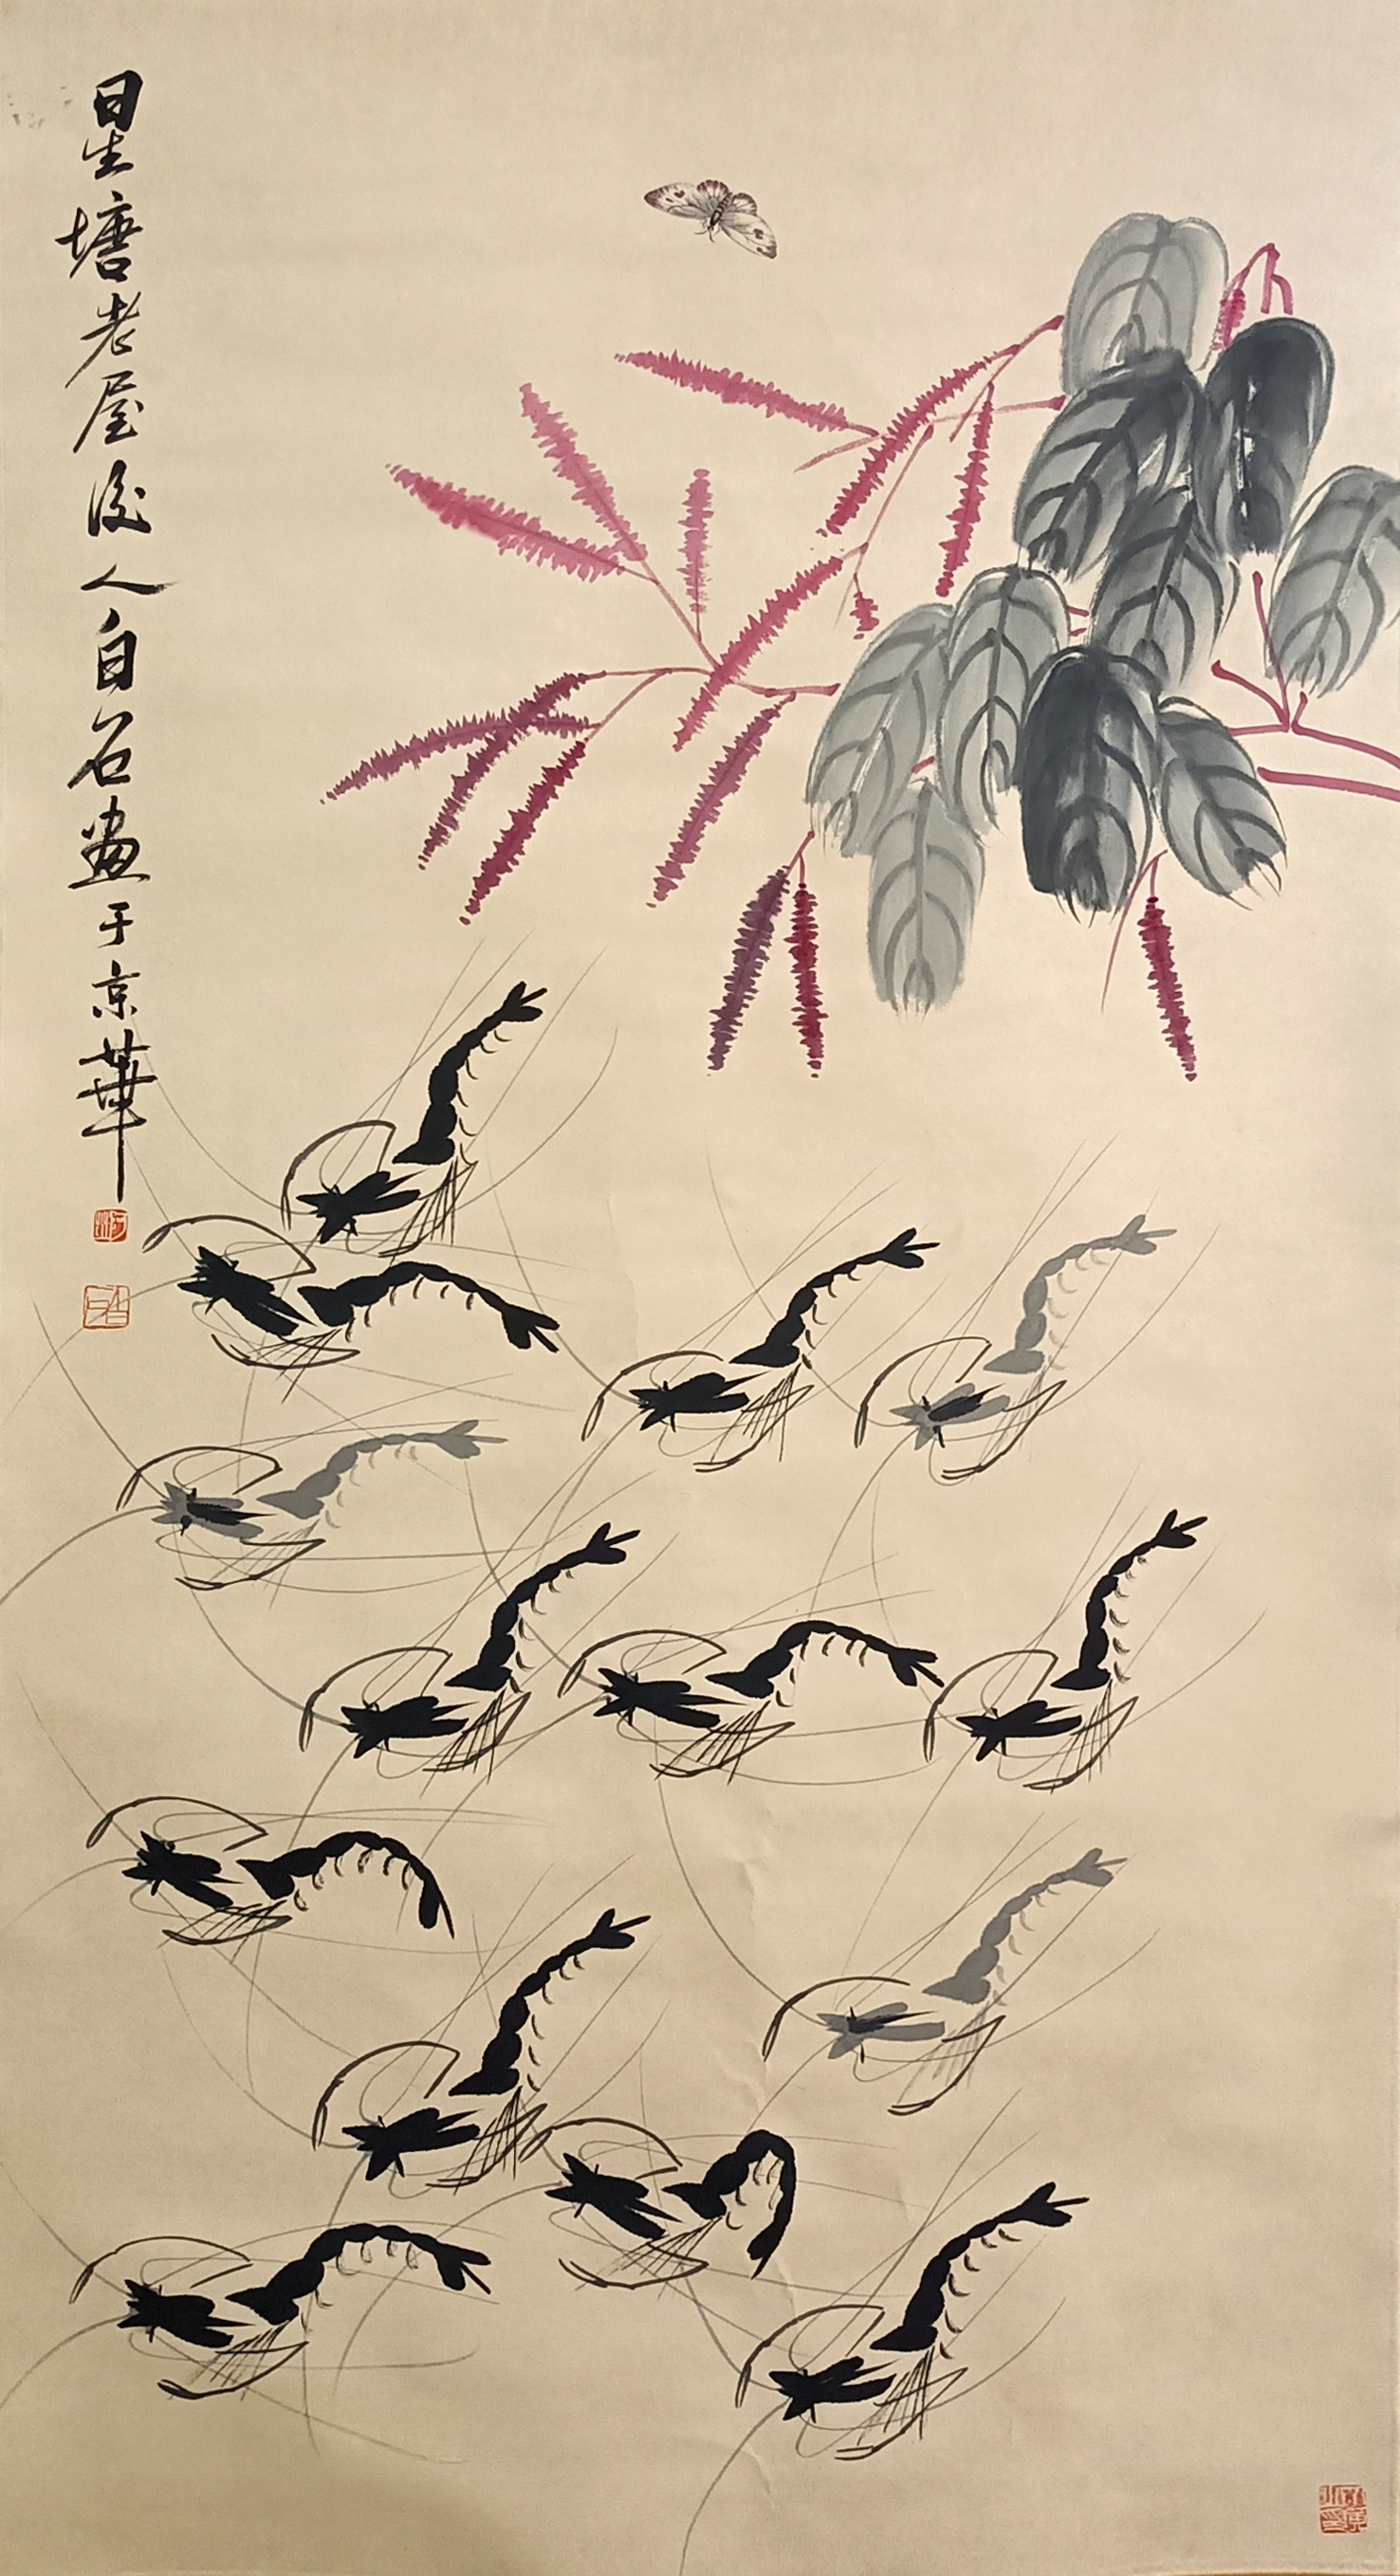 星塘老屋後人白石畫于京華
白石